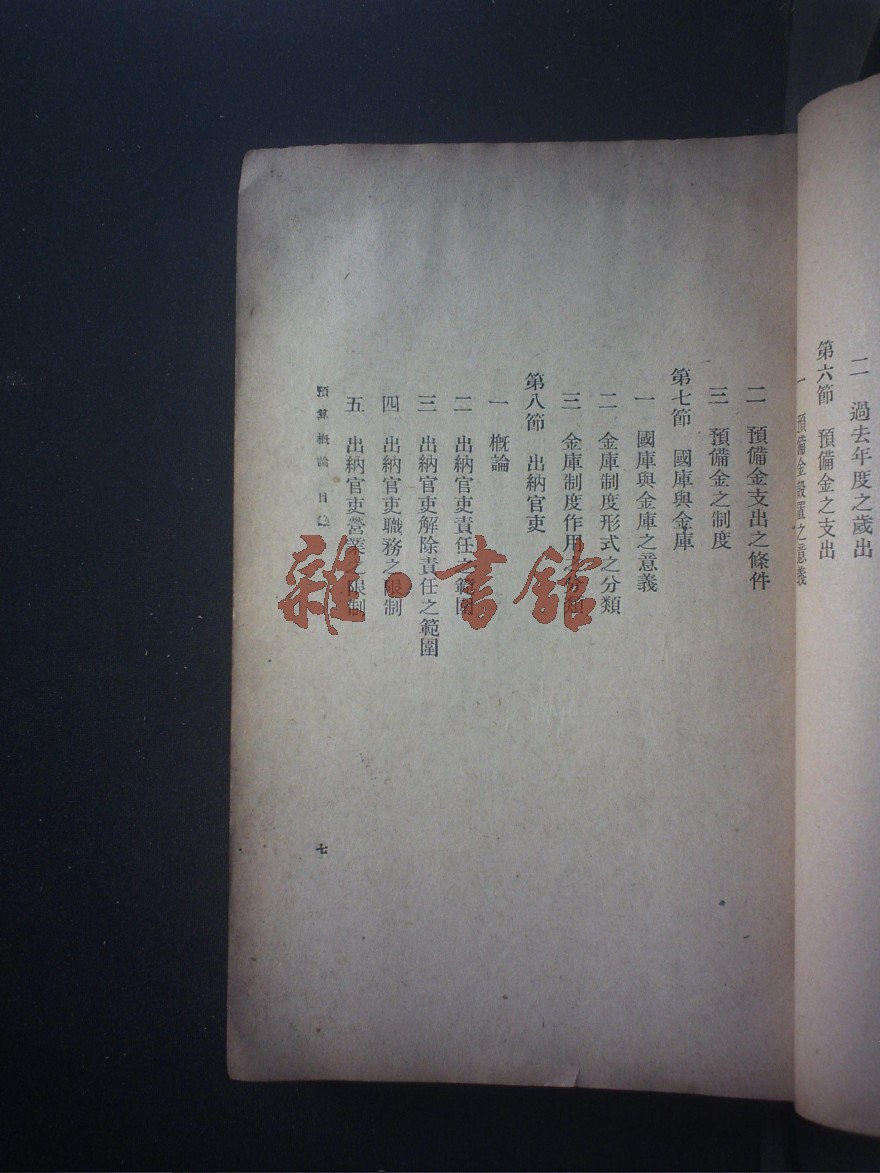 二 過去年度之歲出
第六節 預備金之支出
一 預備金設置之意義
二 預備金支出之條件
三 預備金之制度
第七節 國庫與金庫
一 國庫與金庫之意義
二 金庫制度形式之分類
三 金庫制度作用之分類
第八節 出納官吏
一 概論
二 出納官吏責任之範圍
三 出納官吏解除責任之範圍
四 出納官吏職務之限制
五 出納官吏營業之限制
預算概論 目
七
雜·書館